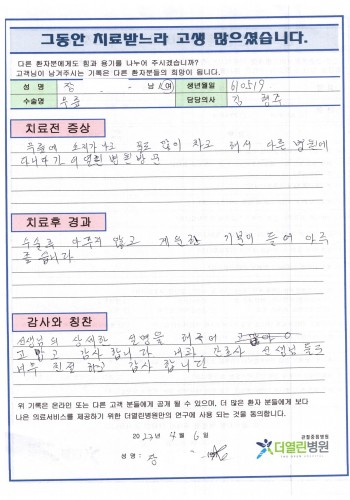 그동안 치료받느라 고생 많으셨습니다.
다른 환자분에게도 힘과 용기를 나누어 주시겠습니까?
고객님이 남겨주시는 기록은 다른 환자분들의 희망이 됩니다.
성 명 장 남 / 여 생년월일 610519
수술명 무릎 담당의사 김
치료전 증상
무릎에 소리가 나고 많이 차고 해서 다른 병원에
다니다가 더열린병원 방문
치료후 경과
수술후 아프지 않고 개운한 기분이 들어 아주
좋습니다
감사와 칭찬
선생님의 상세한 설명을 해주어
고맙고 감사합니다 간호사 선생님들도
너무 친절하고 감사합니다
위 기록은 온라인 또는 다른 고객 분들에게 공개 될 수 있으며, 더 많은 환자 분들에게 보다
나은 의료서비스를 제공하기 위한 더열린병원만의 연구에 사용 되는 것을 동의합니다.
2023년 4월 6일
성 명 : 장
관절중점병원
더열린병원